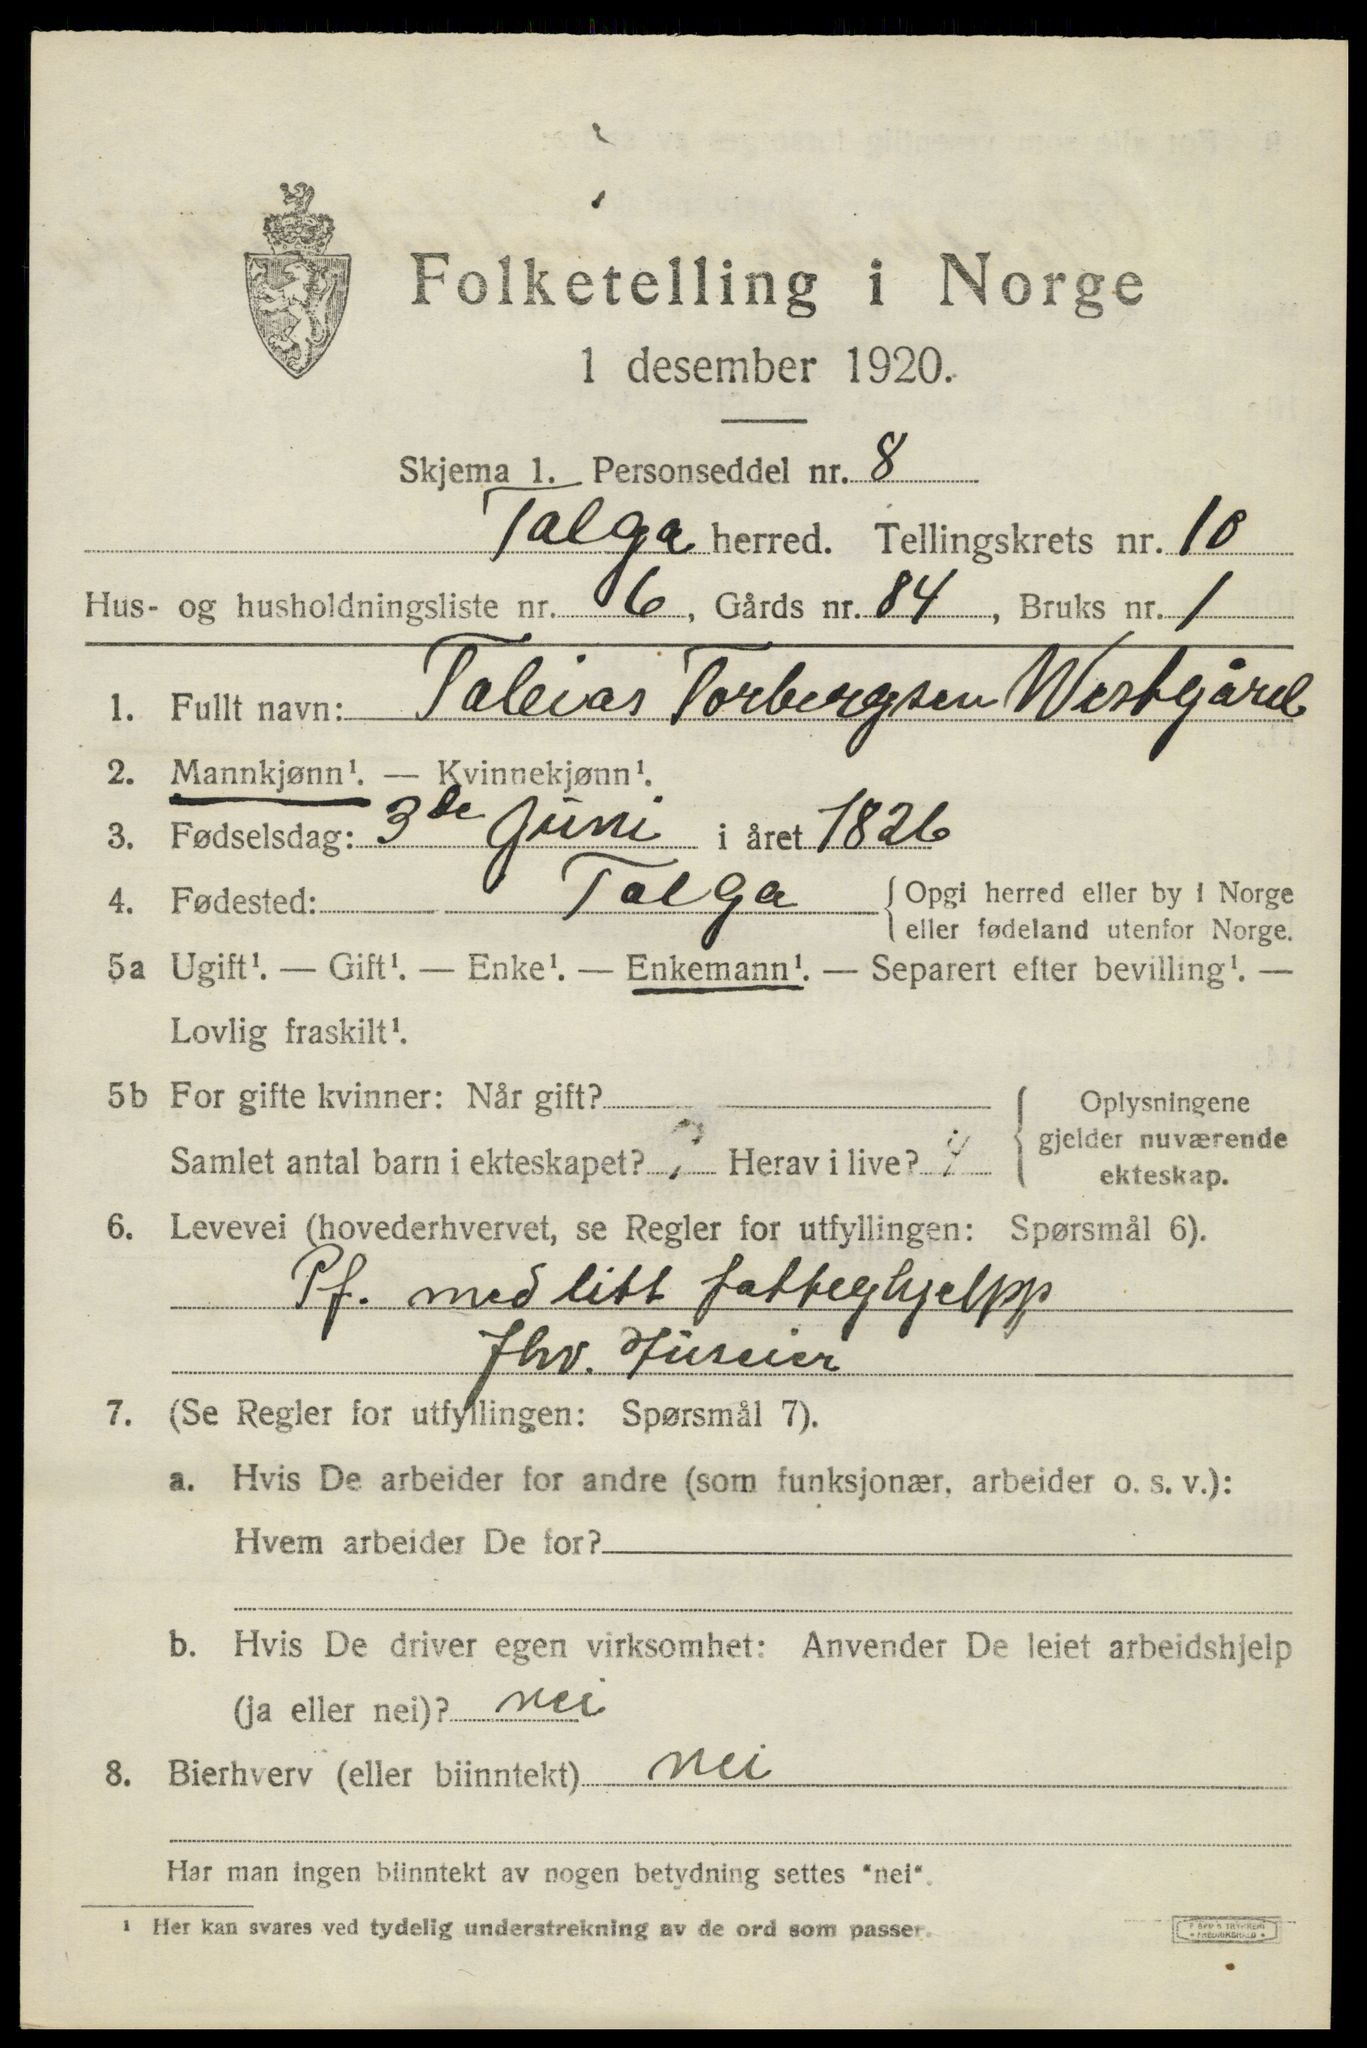 Folketelling i Norge
1 desember 1920.
Skjema 1. Personseddel nr. 8
Talga herred. Tellingskrets nr. 10
Hus- og husholdningsliste nr. 6, Gårds nr. 84, Bruks nr. 1
1. Fullt navn: Tobias Torbergsen Westgård
2. Mannkjønn¹. — Kvinnekjønn¹.
3. Fødselsdag: 3de Juni i året 1826
4. Fødested: Talga {Opgi herred eller by i Norge
eller fødeland utenfor Norge.
5a Ugift¹. — Gift¹. — Enke¹. — Enkemann¹. — Separert efter bevilling¹. —
Lovlig fraskilt¹.
5b For gifte kvinner: Når gift?
Samlet antal barn i ekteskapet? Herav i live?
Oplysningene
gjelder nuværende
ekteskap.
6. Levevei (hovederhvervet, se Regler for utfyllingen: Spørsmål 6).
Pf. med litt fatteghjelpp
fhv. Huseier
7. (Se Regler for utfyllingen: Spørsmål 7).
a. Hvis De arbeider for andre (som funksjonær, arbeider o. s. v.):
Hvem arbeider De for?
b. Hvis De driver egen virksomhet: Anvender De leiet arbeidshjelp
(ja eller nei)? nei
8. Bierhverv (eller biinntekt) nei
Har man ingen biinntekt av nogen betydning settes "nei".
¹ Her kan svares ved tydelig understrekning av de ord som passer.